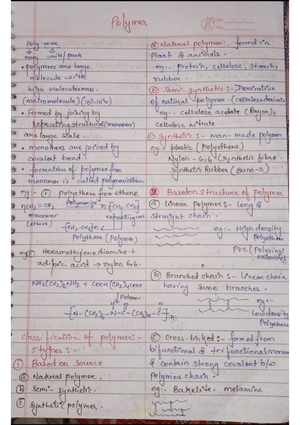 Polymer
Poly mer
many units/parts
• polymers are large
molecule with
high molecular mass
(macromolecule) (10³-10⁷u)
• formed by joining by
repeating structure (monomer)
on large scale.
• monomers are joined by
covalent bond.
• formation of polymer from
monomer is called polymerisation
eg:- ① Polyethene from ethene
nCH₂ = CH₂ Polymerize
monomer
(ethene)
Polythene (Polymer)
Hexamethylene diamine +
adipic acid → nylon 6,6.
NH₂(CH₂)₆NH₂ + COOH(CH₂)₄COOH
↓ Polymer
classification of polymer:-
5 types :-
① Based on Source
ⓐ Natural polymer.
ⓑ Semi-synthetic.
ⓒ Synthetic polymer.
ⓐ Natural polymer:- found in
Plant & animals.
eg:- Protein, cellulose, starch,
rubber.
ⓑ Semi-Synthetic :- Derivative
of natural polymer
eg:- cellulose acetate (Rayon),
cellulose nitrate
ⓒ Synthetic :- man-made polymer
eg:- plastic (polyethene)
Nylon-6,6 (Synthetic fibre)
Synthetic Rubber (Buna-S)
② Based on Structure of polymer
ⓐ linear polymer:- long &
straight chain.
eg:- High density
Polythene
PVC (Polyvinyl
chloride)
ⓑ Branched chain :- linear chain
having some branches.
eg:-
low density
Polythene
ⓒ Cross-linked:- formed from
bifunctional & trifunctional monomer
& contain strong covalent b/w
Polymer chain.
eg:- Bakelite, melamine